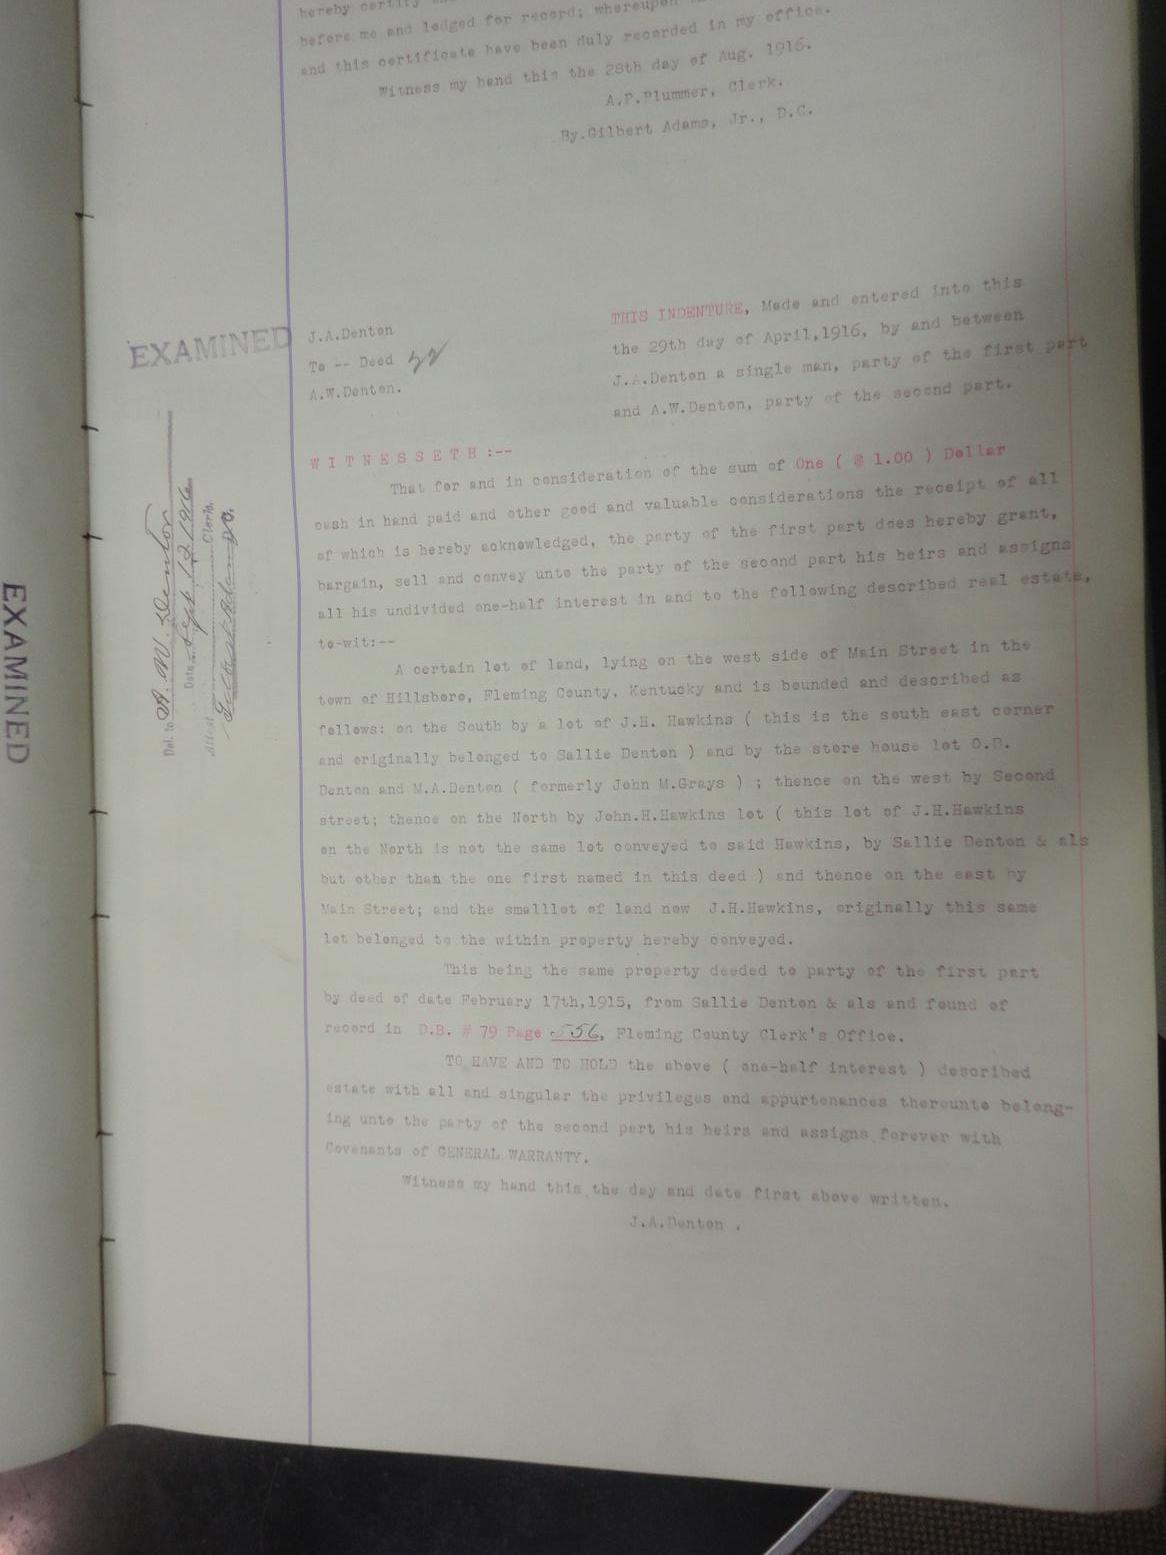 hereby certify
before me and lodged for record; whereupon
and this certificate have been duly recorded in my office.
Witness my hand this the 28th day of Aug. 1916.
A.P.Plummer, Clerk.
By.Gilbert Adams, Jr., D.C.
EXAMINED
J.A.Denton
To -- Deed
A.W.Denton.
THIS INDENTURE, Made and entered into this
the 29th day of April,1916, by and between
J.A.Denton a single man, party of the first part
and A.W.Denton, party of the second part.
W I T N E S S E T H :--
That for and in consideration of the sum of One ( $ 1.00 ) Dollar
cash in hand paid and other good and valuable considerations the receipt of all
of which is hereby acknowledged, the party of the first part does hereby grant,
bargain, sell and convey unto the party of the second part his heirs and assigns
all his undivided one-half interest in and to the following described real estate,
to-wit:--
A certain lot of land, lying on the west side of Main Street in the
town of Hillsboro, Fleming County, Kentucky and is bounded and described as
follows: on the South by a lot of J.H. Hawkins ( this is the south east corner
and originally belonged to Sallie Denton ) and by the store house lot O.B.
Denton and M.A.Denton ( formerly John M.Grays ) ; thence on the west by Second
street; thence on the North by John.H.Hawkins lot ( this lot of J.H.Hawkins
on the North is not the same lot conveyed to said Hawkins, by Sallie Denton & als
but other than the one first named in this deed ) and thence on the east by
Main Street; and the smalllot of land now J.H.Hawkins, originally this same
lot belonged to the within property hereby conveyed.
This being the same property deeded to party of the first part
by deed of date February 17th,1915, from Sallie Denton & als and found of
record in D.B. # 79 Page 556, Fleming County Clerk's Office.
TO HAVE AND TO HOLD the above ( one-half interest ) described
estate with all and singular the privileges and appurtenances thereunto belong-
ing unto the party of the second part his heirs and assigns forever with
Covenants of GENERAL WARRANTY.
Witness my hand this the day and date first above written.
J.A.Denton .
Del. to A. W. Denton
Date Sept 12 1916
Attest Clerk.
Gilbert Adams D.C.
EXAMINED